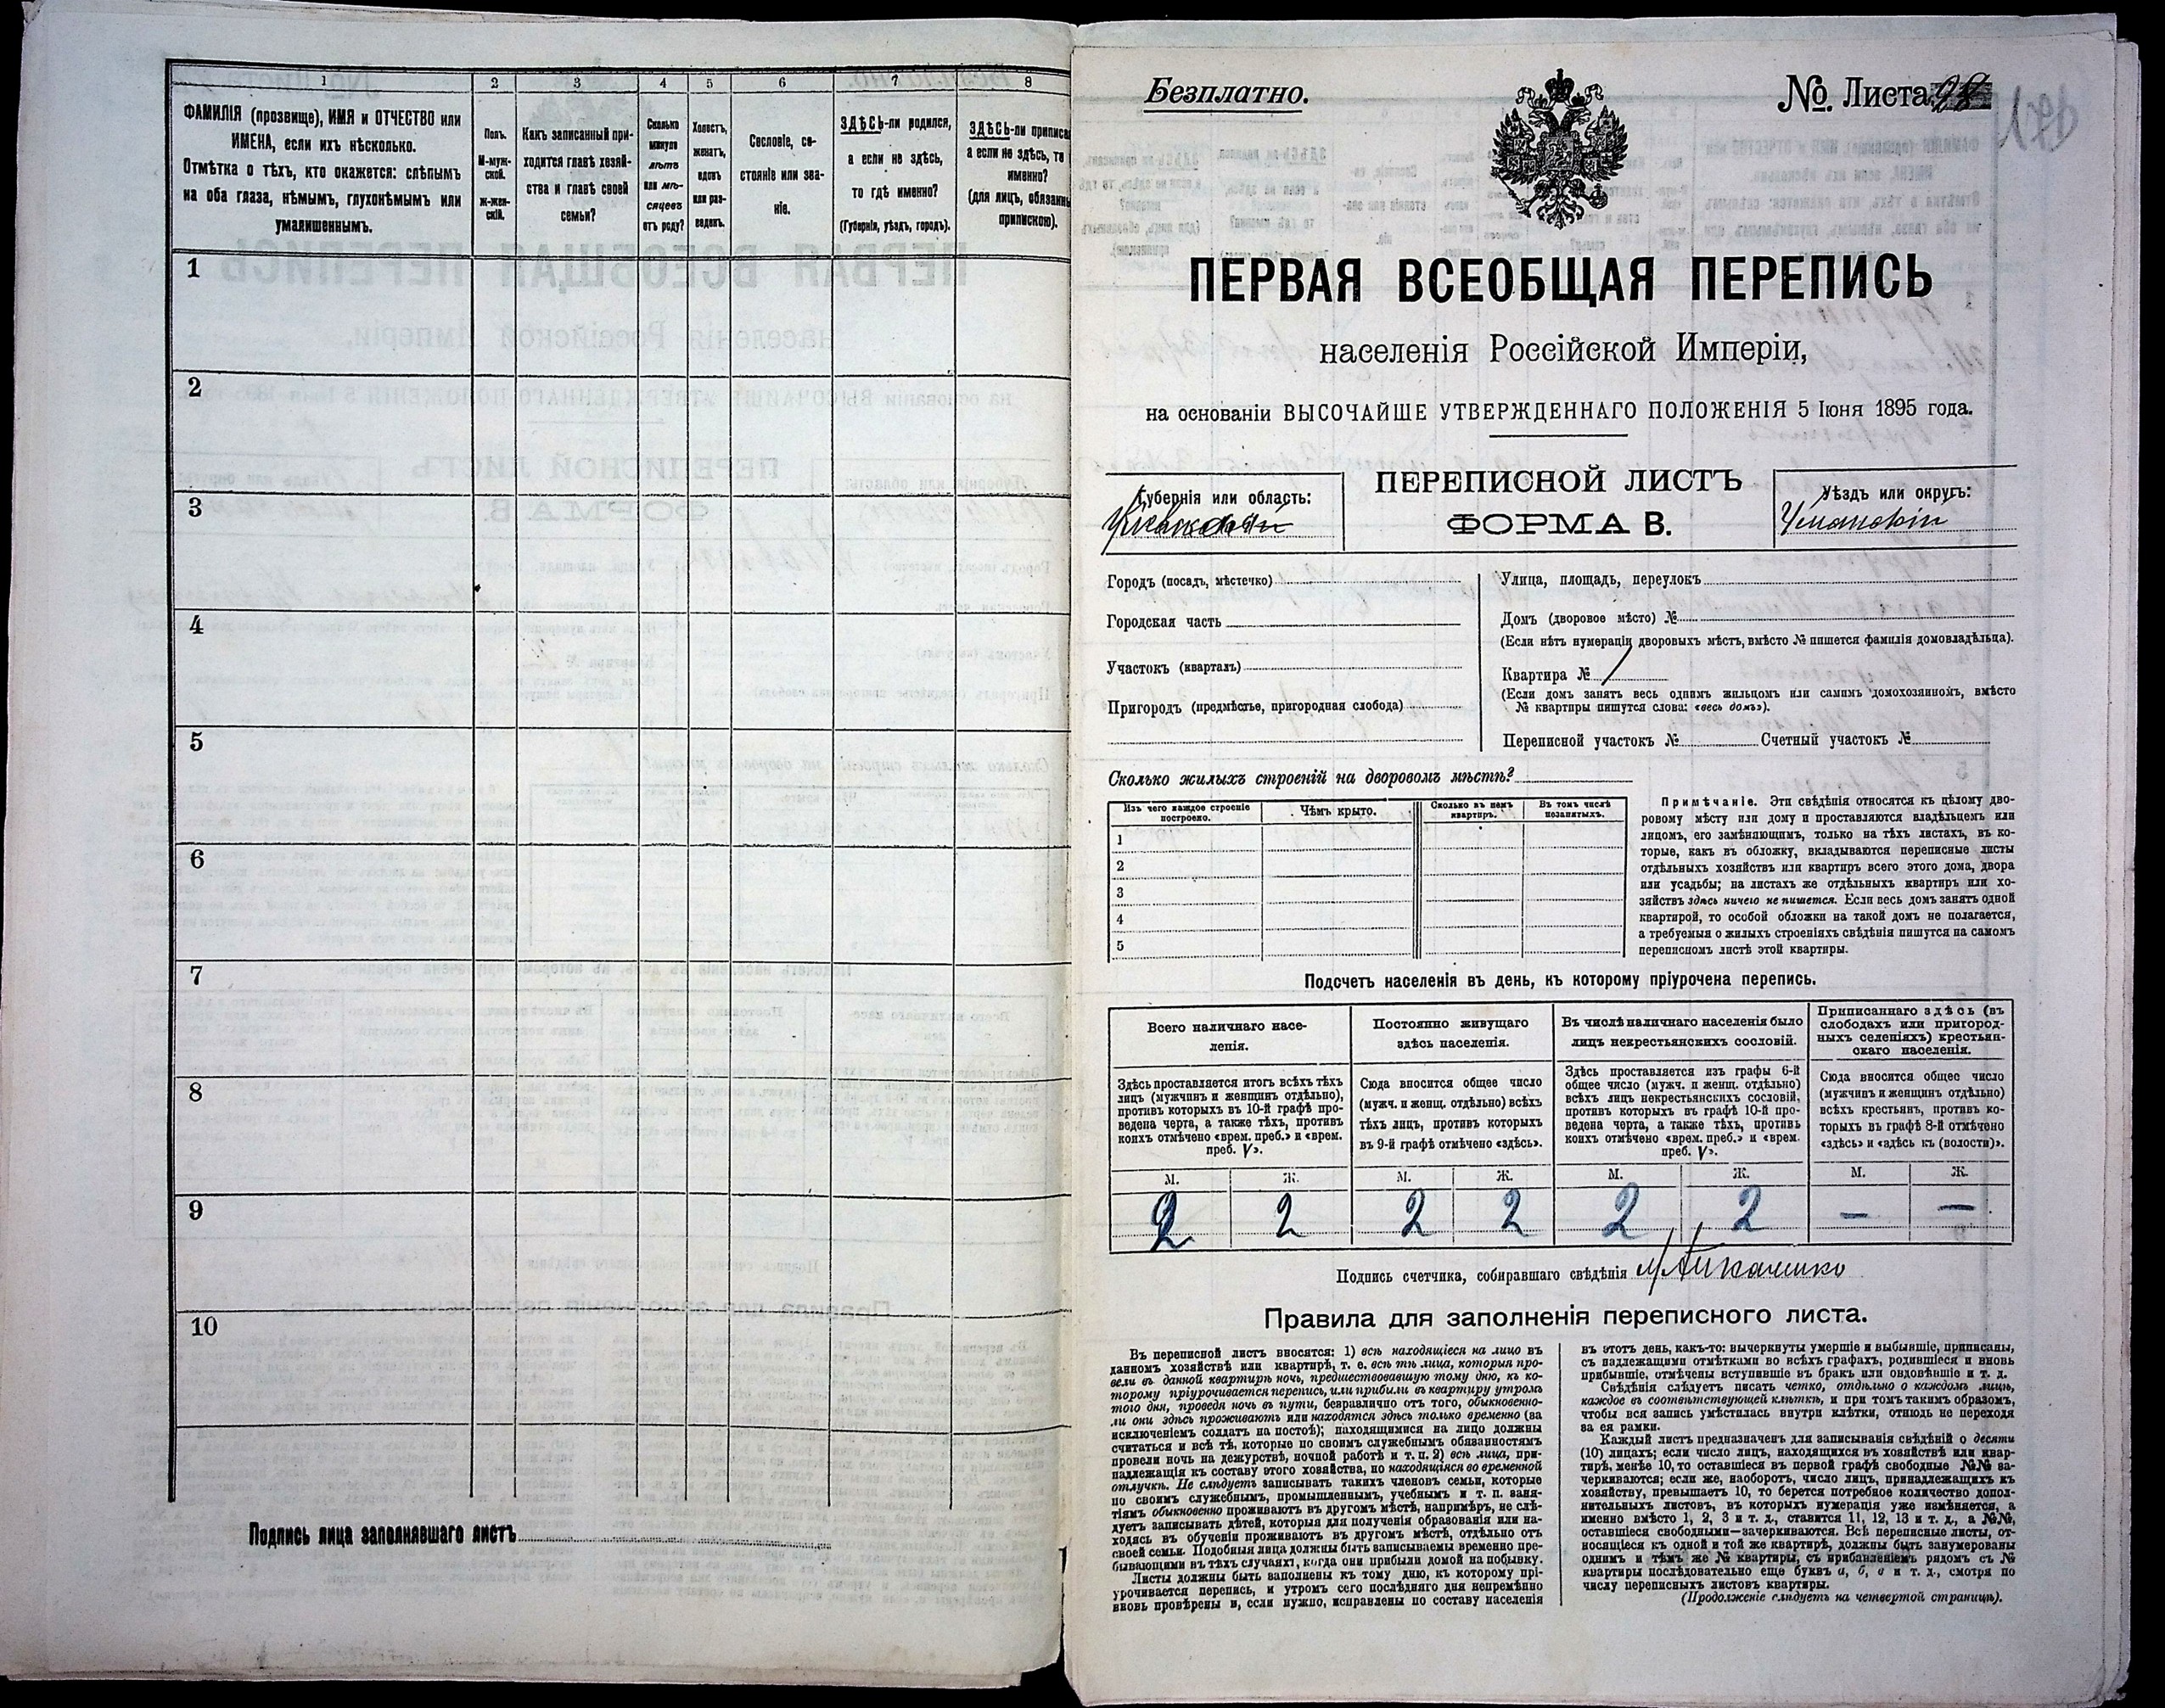 1 2 3 4 5 6 7 8
ФАМИЛІЯ (прозвище), ИМЯ и ОТЧЕСТВО или
ИМЕНА, если ихъ нѣсколько.
Отмѣтка о тѣхъ, кто окажется: слѣпымъ
на оба глаза, нѣмымъ, глухонѣмымъ или
умалишеннымъ.
Полъ.
М-муж-
ской.
Ж-жен-
скій.
Какъ записанный при-
ходится главѣ хозяй-
ства и главѣ своей
семьи?
Сколько
минуло
лѣтъ
или мѣ-
сяцевъ
отъ роду?
Холостъ,
женатъ,
вдовъ
или раз-
веденъ.
Сословіе, со-
стояніе или зва-
ніе.
ЗДѢСЬ-ли родился,
а если не здѣсь,
то гдѣ именно?
(Губернія, уѣздъ, городъ).
ЗДѢСЬ-ли приписа
а если не здѣсь, то
именно?
(для лицъ, обязанн
припискою).
1
2
3
4
5
6
7
8
9
10
Подпись лица заполнявшаго листъ
Безплатно.
№ Листа
ПЕРВАЯ ВСЕОБЩАЯ ПЕРЕПИСЬ
населенія Россійской Имперіи,
на основаніи ВЫСОЧАЙШЕ УТВЕРЖДЕННАГО ПОЛОЖЕНІЯ 5 Іюня 1895 года.
Губернія или область:
ПЕРЕПИСНОЙ ЛИСТЪ
ФОРМА В.
Уѣздъ или округъ:
Уманскій
Городъ (посадъ, мѣстечко)
Городская часть
Участокъ (кварталъ)
Пригородъ (предмѣстье, пригородная слобода)
Улица, площадь, переулокъ
Домъ (дворовое мѣсто) №
(Если нѣтъ нумераціи дворовыхъ мѣстъ, вмѣсто № пишется фамилія домовладѣльца).
Квартира №
(Если домъ занятъ весь однимъ жильцомъ или самимъ домохозяиномъ, вмѣсто
№ квартиры пишутся слова: «весь домъ»).
Переписной участокъ № Счетный участокъ №
Сколько жилыхъ строеній на дворовомъ мѣстѣ?
Изъ чего каждое строеніе
построено.
Чѣмъ крыто.
Сколько въ немъ
квартиръ.
Въ томъ числѣ
незанятыхъ.
1
2
3
4
5
Примѣчаніе. Эти свѣдѣнія относятся къ цѣлому дво-
ровому мѣсту или дому и проставляются владѣльцемъ или
лицомъ, его замѣняющимъ, только на тѣхъ листахъ, въ ко-
торые, какъ въ обложку, вкладываются переписные листы
отдѣльныхъ хозяйствъ или квартиръ всего этого дома, двора
или усадьбы; на листахъ же отдѣльныхъ квартиръ или хо-
зяйствъ здѣсь ничего не пишется. Если весь домъ занятъ одной
квартирой, то особой обложки на такой домъ не полагается,
а требуемыя о жилыхъ строеніяхъ свѣдѣнія пишутся на самомъ
переписномъ листѣ этой квартиры.
Подсчетъ населенія въ день, къ которому пріурочена перепись.
Всего наличнаго насе-
ленія.
Постоянно живущаго
здѣсь населенія.
Въ числѣ наличнаго населенія было
лицъ некрестьянскихъ сословій.
Приписаннаго здѣсь (въ
слободахъ или пригород-
ныхъ селеніяхъ) крестьян-
скаго населенія.
Здѣсь проставляется итогъ всѣхъ тѣхъ
лицъ (мужчинъ и женщинъ отдѣльно),
противъ которыхъ въ 10-й графѣ про-
ведена черта, а также тѣхъ, противъ
коихъ отмѣчено «врем. преб.» и «врем.
преб. V».
Сюда вносится общее число
(мужч. и женщ. отдѣльно) всѣхъ
тѣхъ лицъ, противъ которыхъ
въ 9-й графѣ отмѣчено «здѣсь».
Здѣсь проставляется изъ графы 6-й
общее число (мужч. и женщ. отдѣльно)
всѣхъ лицъ некрестьянскихъ сословій,
противъ которыхъ въ графѣ 10-й про-
ведена черта, а также тѣхъ, противъ
коихъ отмѣчено «врем. преб.» и «врем.
преб. V».
Сюда вносится общее число
(мужчинъ и женщинъ отдѣльно)
всѣхъ крестьянъ, противъ ко-
торыхъ въ графѣ 8-й отмѣчено
«здѣсь» и «здѣсь къ (волости)».
М. Ж. М. Ж. М. Ж. М. Ж.
2 2 2 2 2 2 — —
Подпись счетчика, собиравшаго свѣдѣнія
Правила для заполненія переписного листа.
Въ переписной листъ вносятся: 1) всѣ находящіеся на лицо въ
данномъ хозяйствѣ или квартирѣ, т. е. всѣ тѣ лица, которыя про-
вели въ данной квартирѣ ночь, предшествовавшую тому дню, къ ко-
торому пріурочивается перепись, или прибыли въ квартиру утромъ
того дня, проведя ночь въ пути, безразлично отъ того, обыкновенно-
ли они здѣсь проживаютъ или находятся здѣсь только временно (за
исключеніемъ солдатъ на постоѣ); находящимися на лицо должны
считаться и всѣ тѣ, которые по своимъ служебнымъ обязанностямъ
провели ночь на дежурствѣ, ночной работѣ и т. п. 2) всѣ лица, при-
надлежащія къ составу этого хозяйства, но находящіяся во временной
отлучкѣ. Не слѣдуетъ записывать такихъ членовъ семьи, которые
по своимъ служебнымъ, промышленнымъ, учебнымъ и т. п. заня-
тіямъ обыкновенно проживаютъ въ другомъ мѣстѣ, напримѣръ, не слѣ-
дуетъ записывать дѣтей, которыя для полученія образованія или на-
ходясь въ обученіи проживаютъ въ другомъ мѣстѣ, отдѣльно отъ
своей семьи. Подобныя лица должны быть записываемы временно пре-
бывающими въ тѣхъ случаяхъ, когда они прибыли домой на побывку.
Листы должны быть заполнены къ тому дню, къ которому прі-
урочивается перепись, и утромъ сего послѣдняго дня непремѣнно
вновь провѣрены и, если нужно, исправлены по составу населенія
въ этотъ день, какъ-то: вычеркнуты умершіе и выбывшіе, приписаны,
съ надлежащими отмѣтками во всѣхъ графахъ, родившіеся и вновь
прибывшіе, отмѣчены вступившіе въ бракъ или овдовѣвшіе и т. д.
Свѣдѣнія слѣдуетъ писать четко, отдѣльно о каждомъ лицѣ,
каждое въ соотвѣтствующей клѣткѣ, и при томъ такимъ образомъ,
чтобы вся запись умѣстилась внутри клѣтки, отнюдь не переходя
за ея рамки.
Каждый листъ предназначенъ для записыванія свѣдѣній о десяти
(10) лицахъ; если число лицъ, находящихся въ хозяйствѣ или квар-
тирѣ, менѣе 10, то оставшіеся въ первой графѣ свободные №№ за-
черкиваются; если же, наоборотъ, число лицъ, принадлежащихъ къ
хозяйству, превышаетъ 10, то берется потребное количество допол-
нительныхъ листовъ, въ которыхъ нумерація уже измѣняется, а
именно вмѣсто 1, 2, 3 и т. д., ставится 11, 12, 13 и т. д., а №№,
оставшіеся свободными—зачеркиваются. Всѣ переписные листы, от-
носящіеся къ одной и той же квартирѣ, должны быть занумерованы
однимъ и тѣмъ же № квартиры, съ прибавленіемъ рядомъ съ №
квартиры послѣдовательно еще буквъ а, б, в и т. д., смотря по
числу переписныхъ листовъ квартиры.
(Продолженіе слѣдуетъ на четвертой страницѣ).